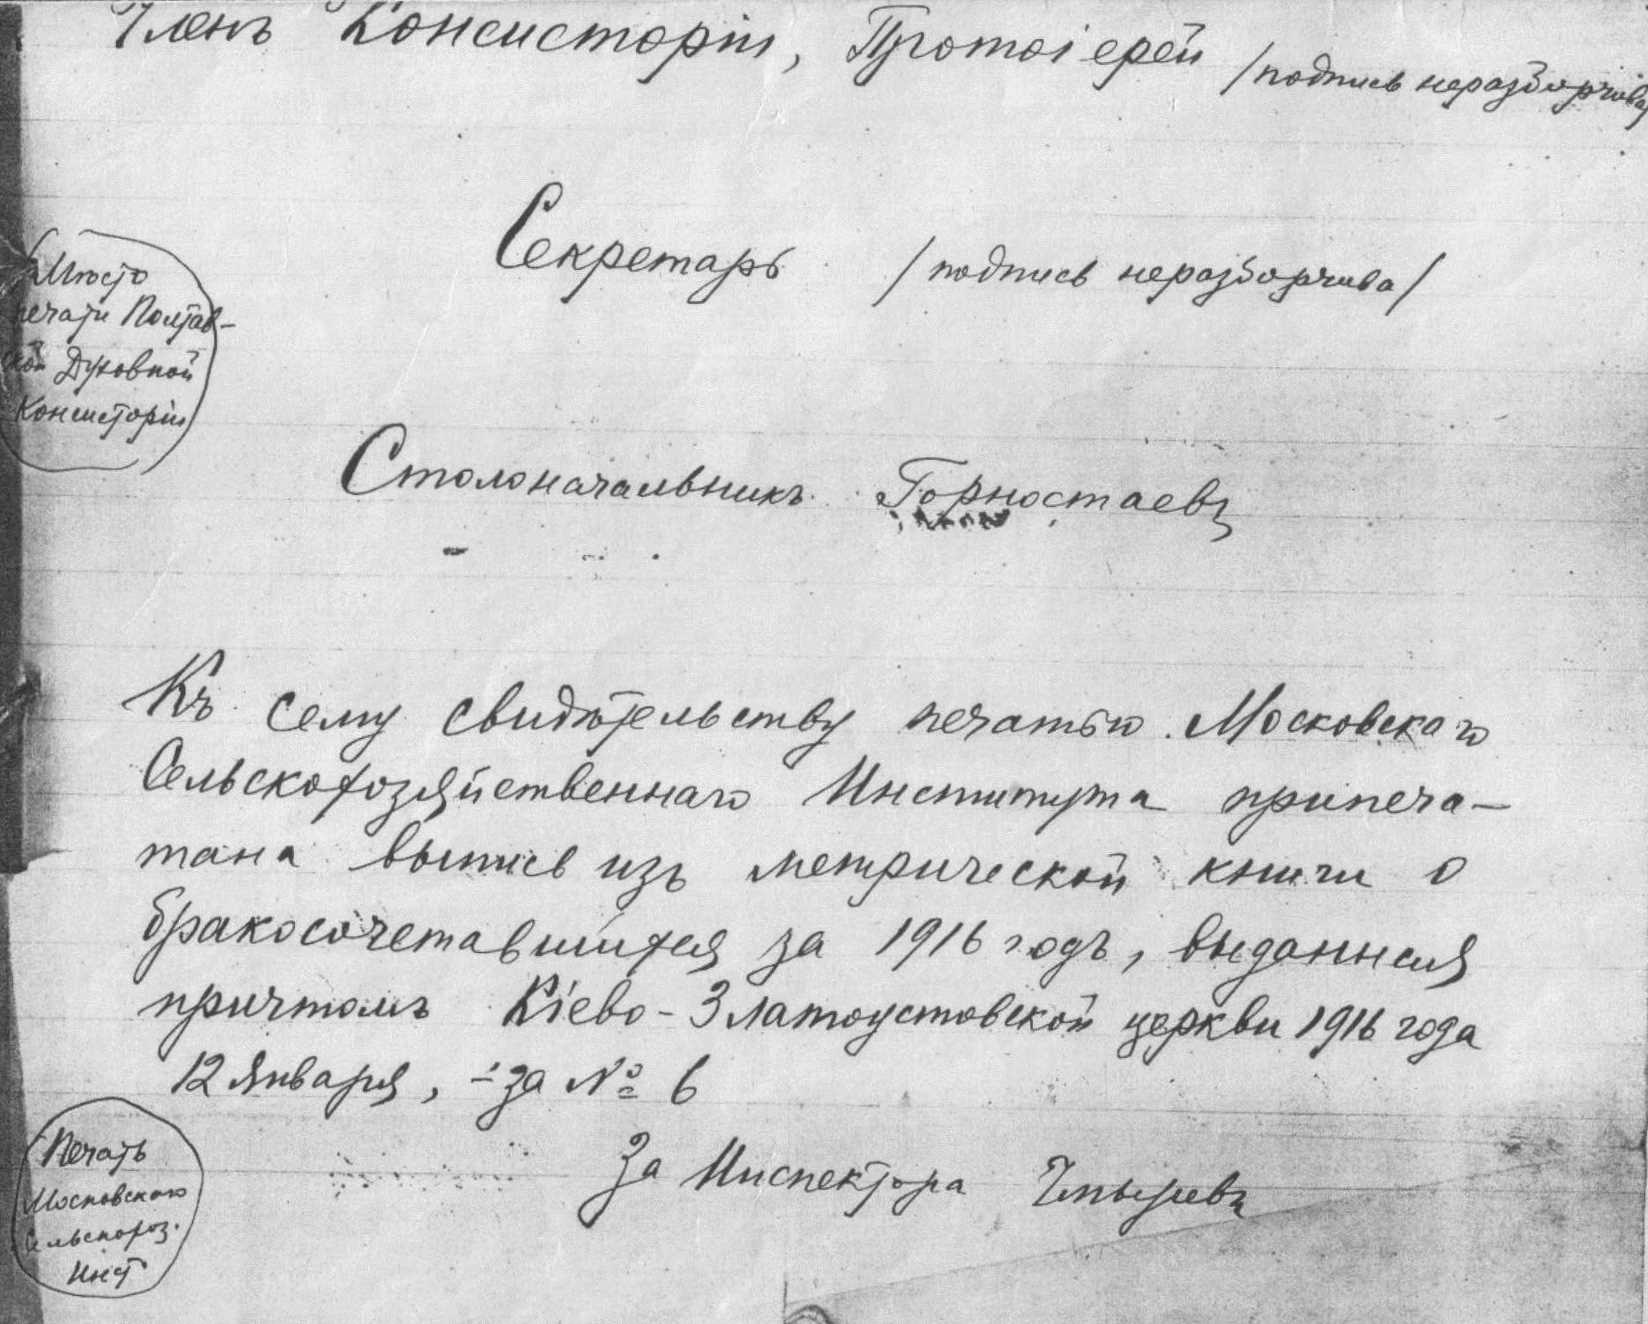 Членъ Консисторіи, Протоіерей /подпись неразборчива/
Секретарь /подпись неразборчива/
Мѣсто
печати Полтав-
ской Духовной
Консисторіи
Столоначальникъ Горностаевъ
Къ сему свидѣтельству печатью Московскаго
Сельскохозяйственнаго Института припеча-
тана выпись изъ метрической книги о
бракосочетавшихся за 1916 годъ, выданная
причтомъ Кіево-Златоустовской церкви 1916 года
12 Января, за № 6
За Инспектора
Печать
Московскаго
Сельскохоз.
Инст